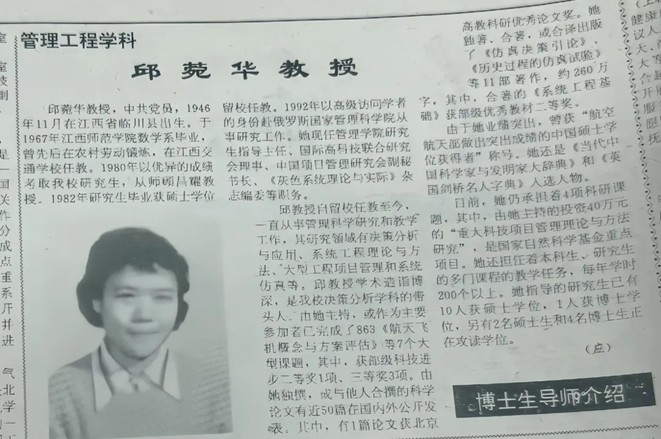 管理工程学科
邱菀华教授
邱菀华教授，中共党员，1946
年11月在江西省临川县出生。于
1967年江西师范学院数学系毕业，
曾先后在农村劳动锻炼，在江西交
通学校任教。1980年以优异的成绩
考取我校研究生，从师郸昌耀教
授。1982年研究生毕业获硕士学位
留校任教。1992年以高级访问学者
的身份赴俄罗斯国家管理科学院从
事研究工作。她现任管理学院研究
生指导主任、国际高科技联合研究
会理事、中国项目管理研究会副秘
书长、《灰色系统理论与实际》杂
志编委等职务。
邱教授自留校任教至今，
一直从事管理科学研究和教学
工作，其研究领域有决策分析
与应用、系统工程理论与方
法、大型工程项目管理和系统
仿真等。邱教授学术造诣博
深，是我校决策分析学科的带
头人。由她主持，或作为主要
参加者已完成了863《航天飞
机概念与方案评估》等7个大
型课题，其中，获部级科技进
步二等奖1项、三等奖3项。由
她独撰，或与他人合撰的科学
论文有近50篇在国内外公开发
表。其中，有1篇论文获北京
高教科研优秀论文奖。她
独著、合著，或合译出版
了《仿真决策引论》、
《历史过程的仿真试验》
等11部著作，约260万
字，其中，合著的《系统工程基
础》获部级优秀教材二等奖。
由于她业绩突出，曾获“航空
航天部做出突出成绩的中国硕士学
位获得者”称号。她还是《当代中
国科学家与发明家大辞典》和《英
国剑桥名人字典》入选人物。
目前，她仍承担着4项科研课
题，其中，由她主持的投资40万元
的“重大科技项目管理理论与方法
研究”，是国家自然科学基金重点
项目。她还担任着本科生、研究生
的多门课程的教学任务，每年学时
200个以上。她指导的研究生已有
10人获硕士学位，1人获博士学
位，另有2名硕士生和4名博士生正
在攻读学位。
博士生导师介绍